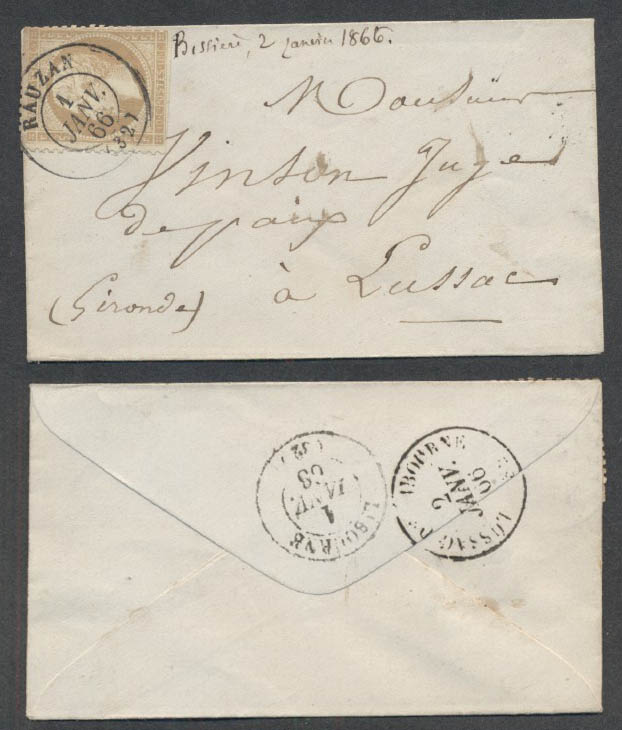 RAUZAN
1
JANV.
66
(32)
Bissière, 2 janvier 1866.
Monsieur
Vinson Juge
de paix
à Lussac
(Gironde)
LIBOURNE
1
JANV.
(32)
LUSSAC
LIBOURNE
2
JANV.
66